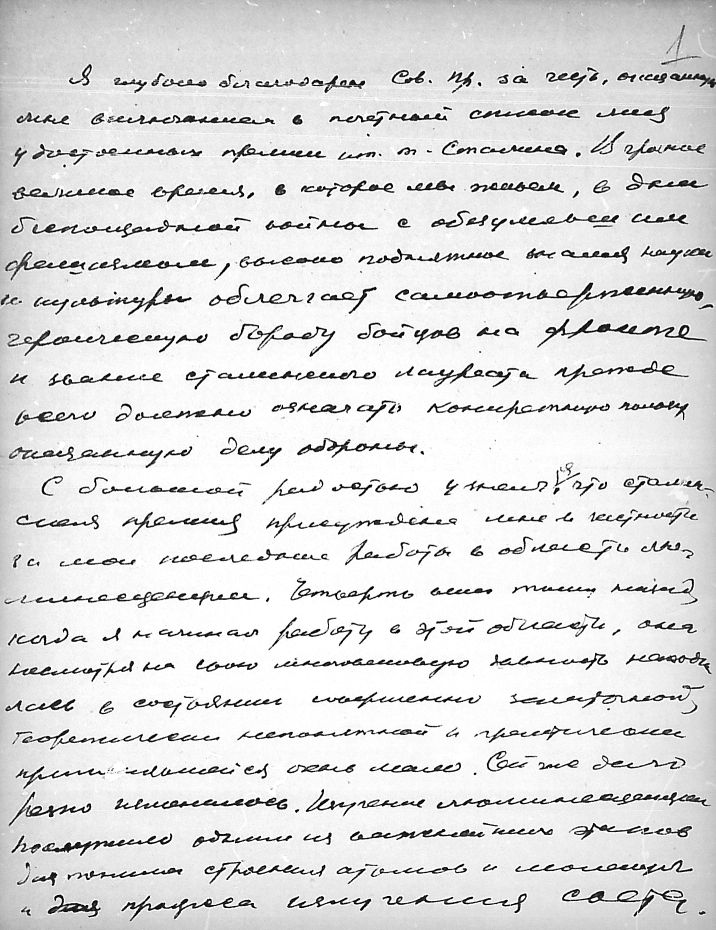 1
Я глубоко благодарен Сов. Пр. за честь, оказанную
мне включением в почетный список лиц
удостоенных премии им. т. Сталина. В грозное
великое время, в которое мы живем, в дни
беспощадной войны с обезумевшим
фашизмом, высоко поднятое знамя науки
и культуры облегчает самоотверженную,
героическую борьбу бойцов на фронте
и звание сталинского лауреата прежде
всего должно означать конкретную помощь
оказанную делу обороны.
С большой радостью узнал я, что сталин-
ская премия присуждена мне в частности
за мои последние работы в области лю-
минесценции. Четверть века тому назад,
когда я начинал работу в этой области, она
несмотря на свою многовековую давность находи
лась в состоянии совершенно зачаточном,
теоретически непонятной и практически
применявшейся очень мало. Сейчас дело
резко изменилось. Изучение люминесценции
послужило одним из важнейших этапов
для понимания строения атомов и молекул
и процесса излучения света.